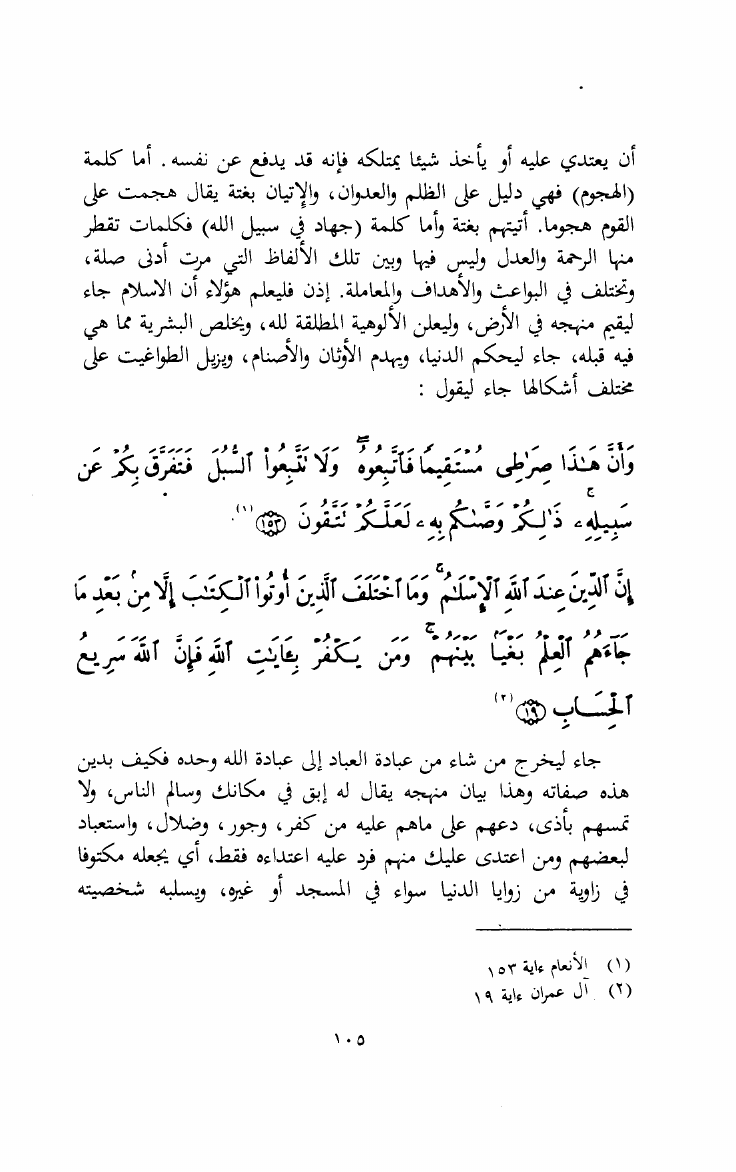 أن يعتدي عليه أو يأخذ شيئا يمتلكه فإنه قد يدفع عن نفسه. أما كلمة
(الهجوم) فهي دليل على الظلم والعدوان، والإتيان بغتة يقال هجمت على
القوم هجوما. أتيتهم بغتة وأما كلمة (جهاد في سبيل الله) فكلمات تقطر
منها الرحمة والعدل وليس فيها وبين تلك الألفاظ التي مرت أدنى صلة،
وتختلف في البواعث والأهداف والمعاملة. إذن فليعلم هؤلاء أن الاسلام جاء
ليقيم منهجه في الأرض، وليعلن الألوهية المطلقة لله، ويخلص البشرية مما هي
فيه قبله، جاء ليحكم الدنيا، ويهدم الأوثان والأصنام، ويزيل الطواغيت على
مختلف أشكالها جاء ليقول :
وَأَنَّ هَـٰذَا صِرَٰطِى مُسْتَقِيمًا فَٱتَّبِعُوهُ ۖ وَلَا تَتَّبِعُوا۟ ٱلسُّبُلَ فَتَفَرَّقَ بِكُمْ عَن
سَبِيلِهِۦ ۚ ذَٰلِكُمْ وَصَّىٰكُم بِهِۦ لَعَلَّكُمْ تَتَّقُونَ ﴿١٥٣﴾ (١).
إِنَّ ٱلدِّينَ عِندَ ٱللَّهِ ٱلْإِسْلَـٰمُ ۗ وَمَا ٱخْتَلَفَ ٱلَّذِينَ أُوتُوا۟ ٱلْكِتَـٰبَ إِلَّا مِنۢ بَعْدِ مَا
جَآءَهُمُ ٱلْعِلْمُ بَغْيًۢا بَيْنَهُمْ ۗ وَمَن يَكْفُرْ بِـَٔايَـٰتِ ٱللَّهِ فَإِنَّ ٱللَّهَ سَرِيعُ
ٱلْحِسَابِ ﴿١٩﴾ (٢)
جاء ليخرج من شاء من عبادة العباد إلى عبادة الله وحده فكيف بدين
هذه صفاته وهذا بيان منهجه يقال له إبق في مكانك وسالم الناس، ولا
تمسهم بأذى، دعهم على ماهم عليه من كفر، وجور، وضلال، واستعباد
لبعضهم ومن اعتدى عليك منهم فرد عليه اعتداءه فقط، أي يجعله مكتوفا
في زاوية من زوايا الدنيا سواء في المسجد أو غيره، ويسلبه شخصيته
(١) الأنعام ءاية ١٥٣
(٢) آل عمران ءاية ١٩
١٠٥